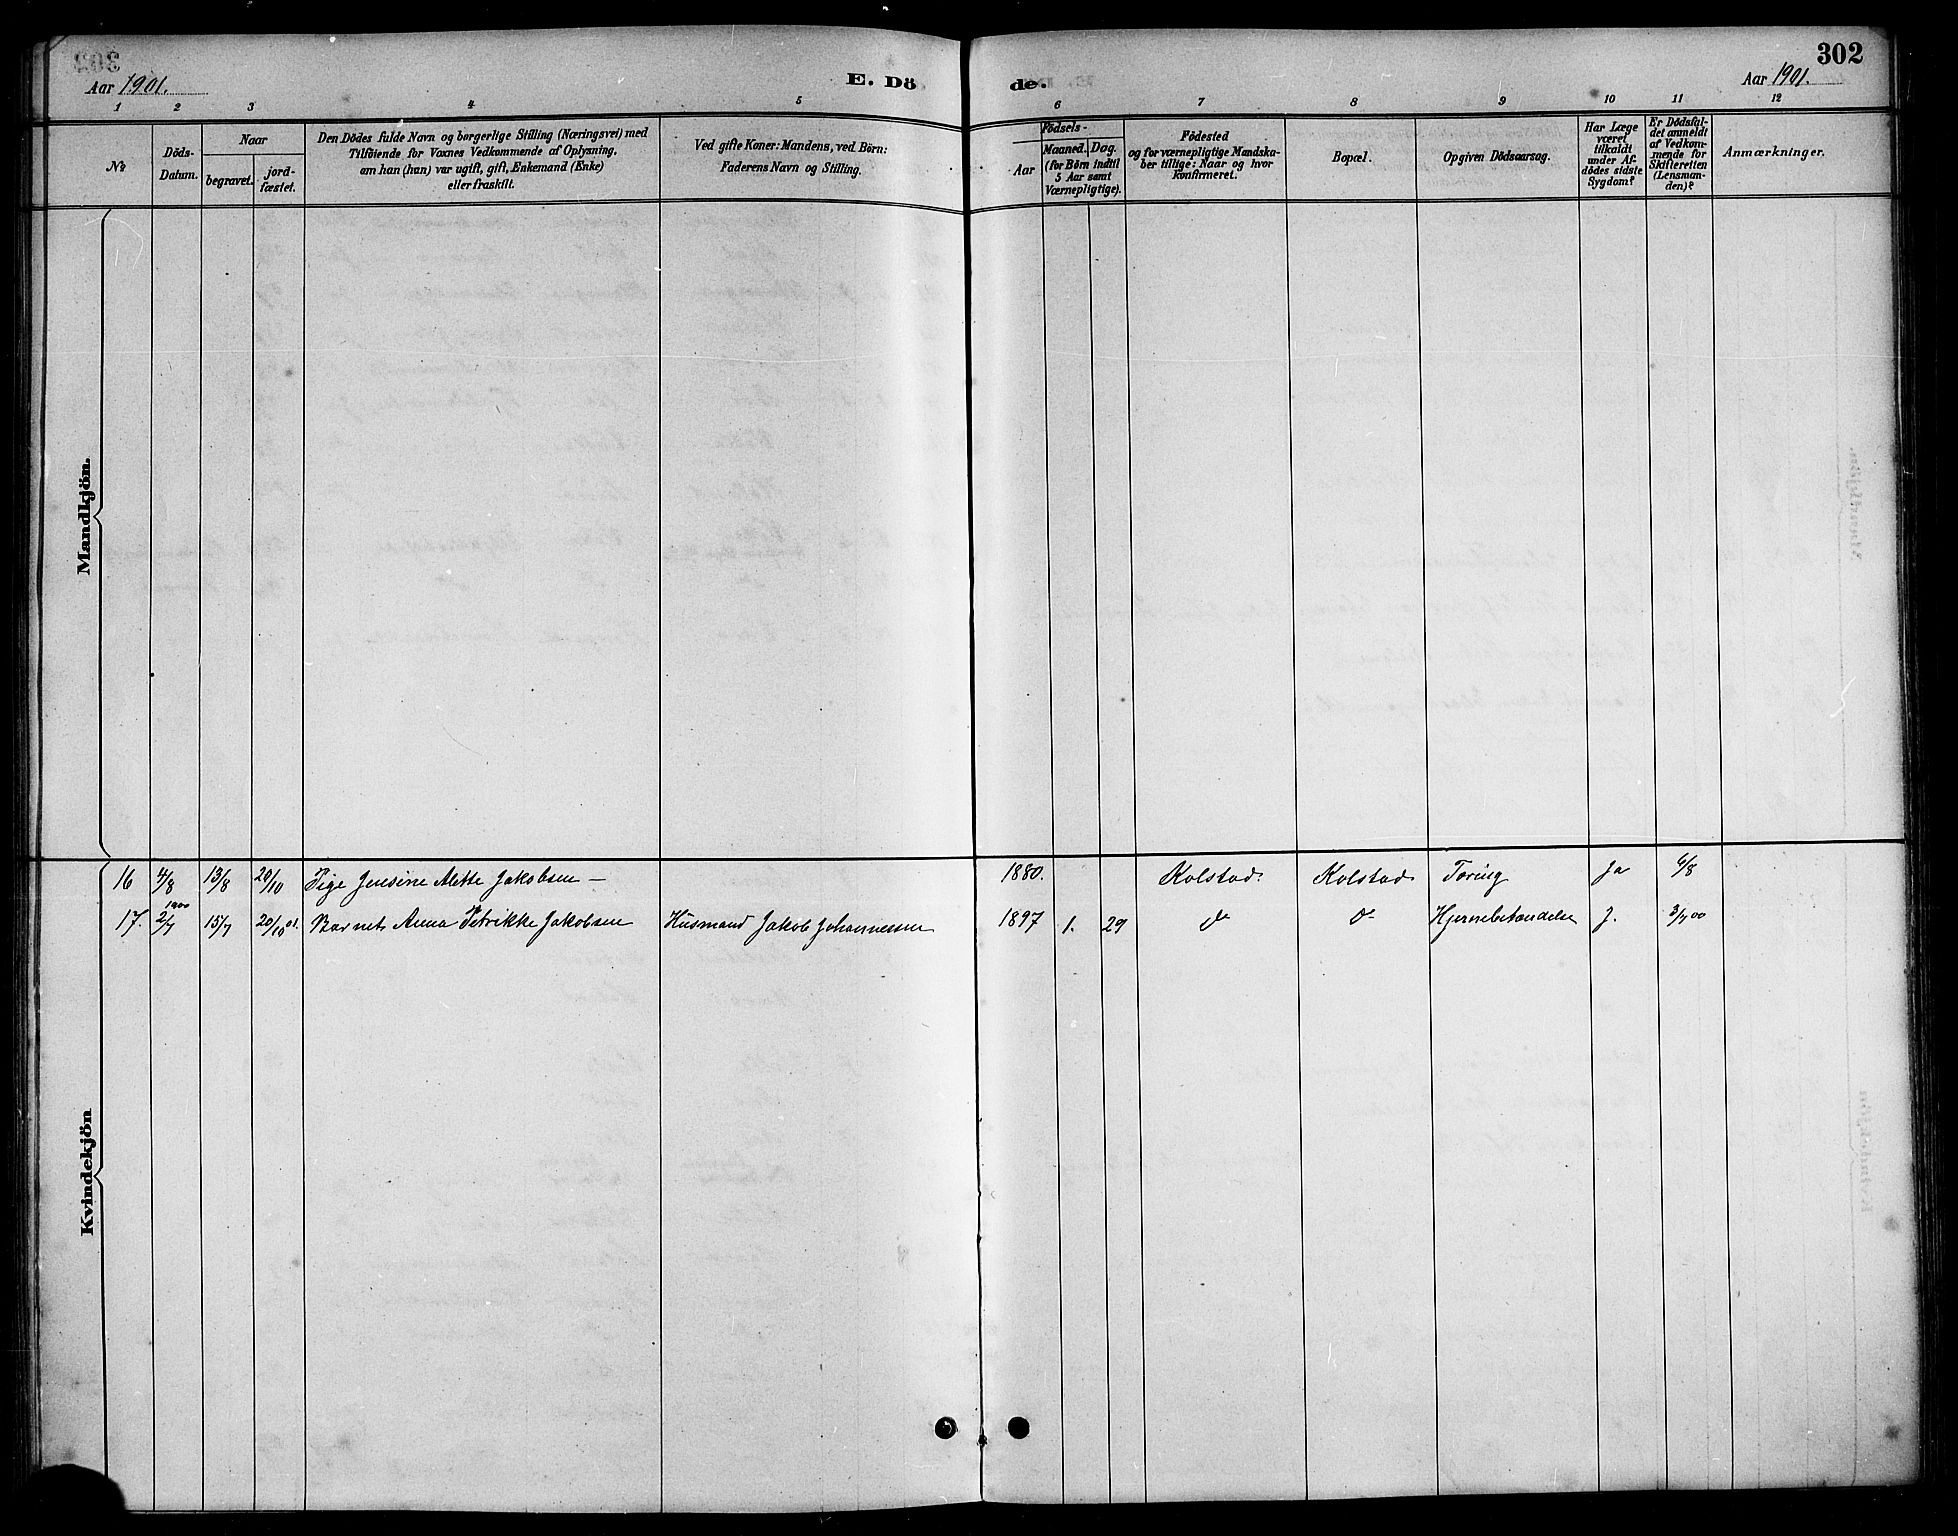 302
Aar 1901.
E. Dö
de.
Aar 1901.
1 2 3 4 5 6 7 8 9 10 11 12
No
Döds-
Datum.
Naar
begravet.
jord-
fæstet.
Den Dödes fulde Navn og borgerlige Stilling (Næringsvei) med
Tilföiende for Voxnes Vedkommende af Oplysning,
om han (hun) var ugift, gift, Enkemand (Enke)
eller fraskilt.
Ved gifte Koner: Mandens, ved Börn:
Faderens Navn og Stilling.
Födsels-
Aar
Maaned. Dag.
(for Börn indtil
5 Aar samt
Værnepligtige).
Födested
og for værnepligtige Mandska-
ber tillige: Naar og hvor
konfirmeret.
Bopæl.
Opgiven Dödsaarsag.
Har Læge
været
tilkaldt
under Af-
dödes sidste
Sygdom?
Er Dödsfal-
det anmeldt
af Vedkom-
mende for
Skifteretten
(Lensman-
den)?
Anmærkninger.
Mandkjön.
Kvindekjön
16 4/8 13/8 20/10 Pige Jensine Mette Jakobsen — 1880. Kolstad. Kolstad Tæring Ja 6/8
1900
17. 2/7 15/7 20/10 01. Barnet Anna Petrikke Jakobsen Husmand Jakob Johannessen 1897 1. 29 do do Hjernebetændelse J. 3/7 00